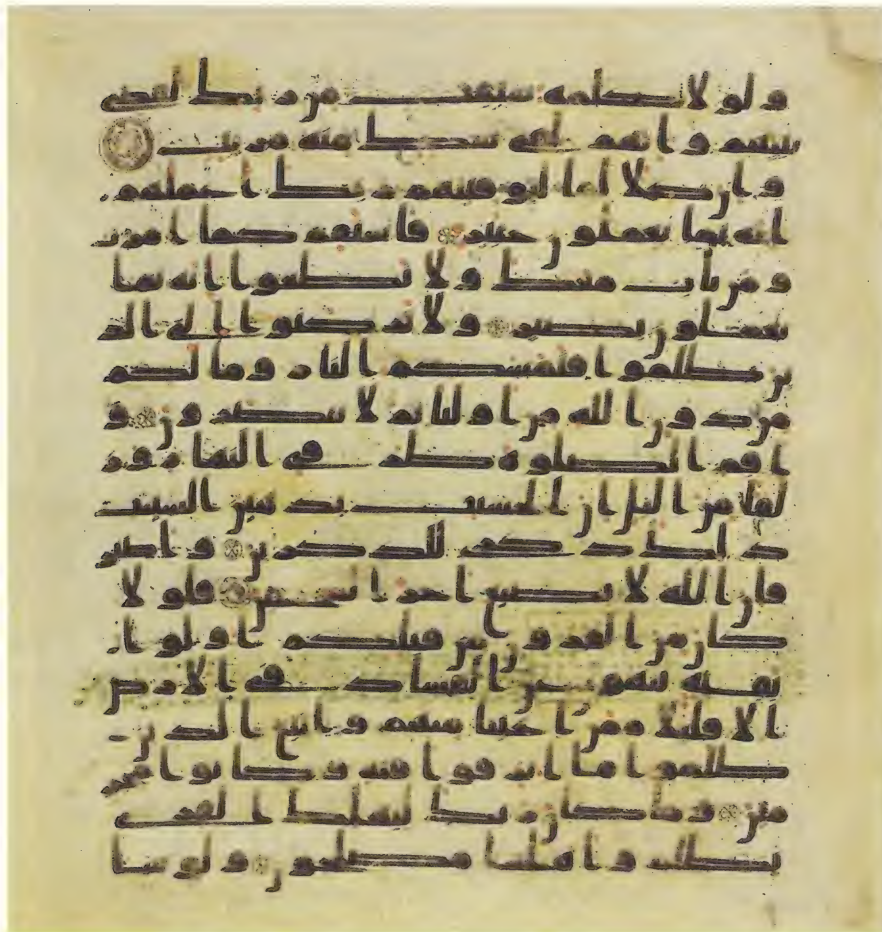 ولولا كلمة سبقت من ربك لقضى
بينهم وانهم لفى شك منه مريب
وان كلا لما ليوفينهم ربك اعملهم
انه بما يعملون خبير فاستقم كما امرت
ومن تاب معك ولا تطغوا انه بما
تعملون بصير ولا تركنوا الى الذ
ين ظلموا فتمسكم النار وما لكم
من دون الله من اوليا ثم لا تنصرون و
اقم الصلوة طرفى النهار وز
لفا من اليل ان الحسنت يذهبن السيت
ذلك ذكرى للذكرين واصبر
فان الله لا يضيع اجر المحسنين فلولا
كان من القرون من قبلكم اولوا
بقية ينهون عن الفساد فى الارض
الا قليلا ممن انجينا منهم واتبع الذين
ظلموا ما اترفوا فيه وكانوا مجر
مين وما كان ربك ليهلك القرى
بظلم واهلها مصلحون ولو شا